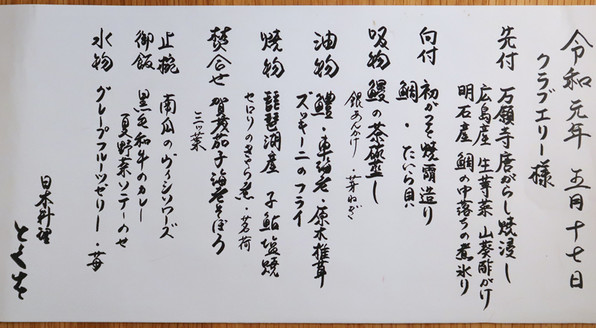 令和元年 五月十七日
クラブエリー様
先付 万願寺唐がらし焼浸し
広島産 生蓴菜 山葵酢がけ
明石産 鯛の中落ちの煮氷り
向付 初がつを焼霜造り
鯛・たいら貝
吸物 鰻の茶碗蒸し
銀あんかけ・芽ねぎ
油物 鱧・車海老・原木椎茸
ズッキーニのフライ
焼物 琵琶湖産 子鮎塩焼
せりのきせら煮・茗荷
焚合せ 賀茂茄子海老そぼろ
三ツ葉
止椀 南瓜のヴィシソワーズ
御飯 黒毛和牛のカレー
夏野菜ソテーのせ
水物 グレープフルーツゼリー・苺
日本料理